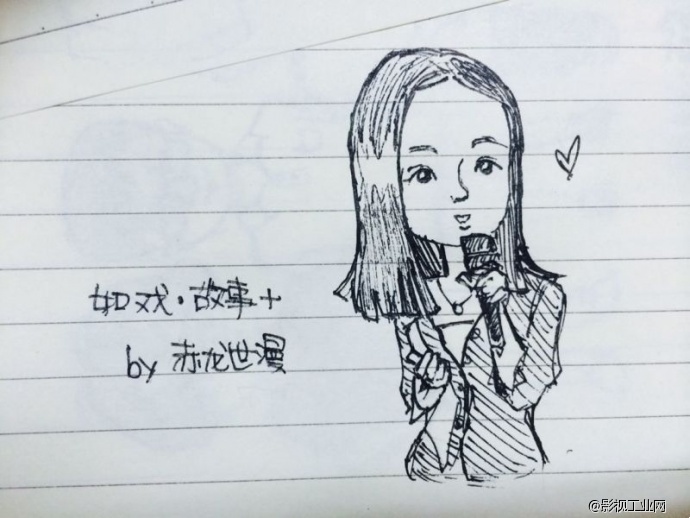 如戏·故事+
by 赤龙世漫
@影视工业网